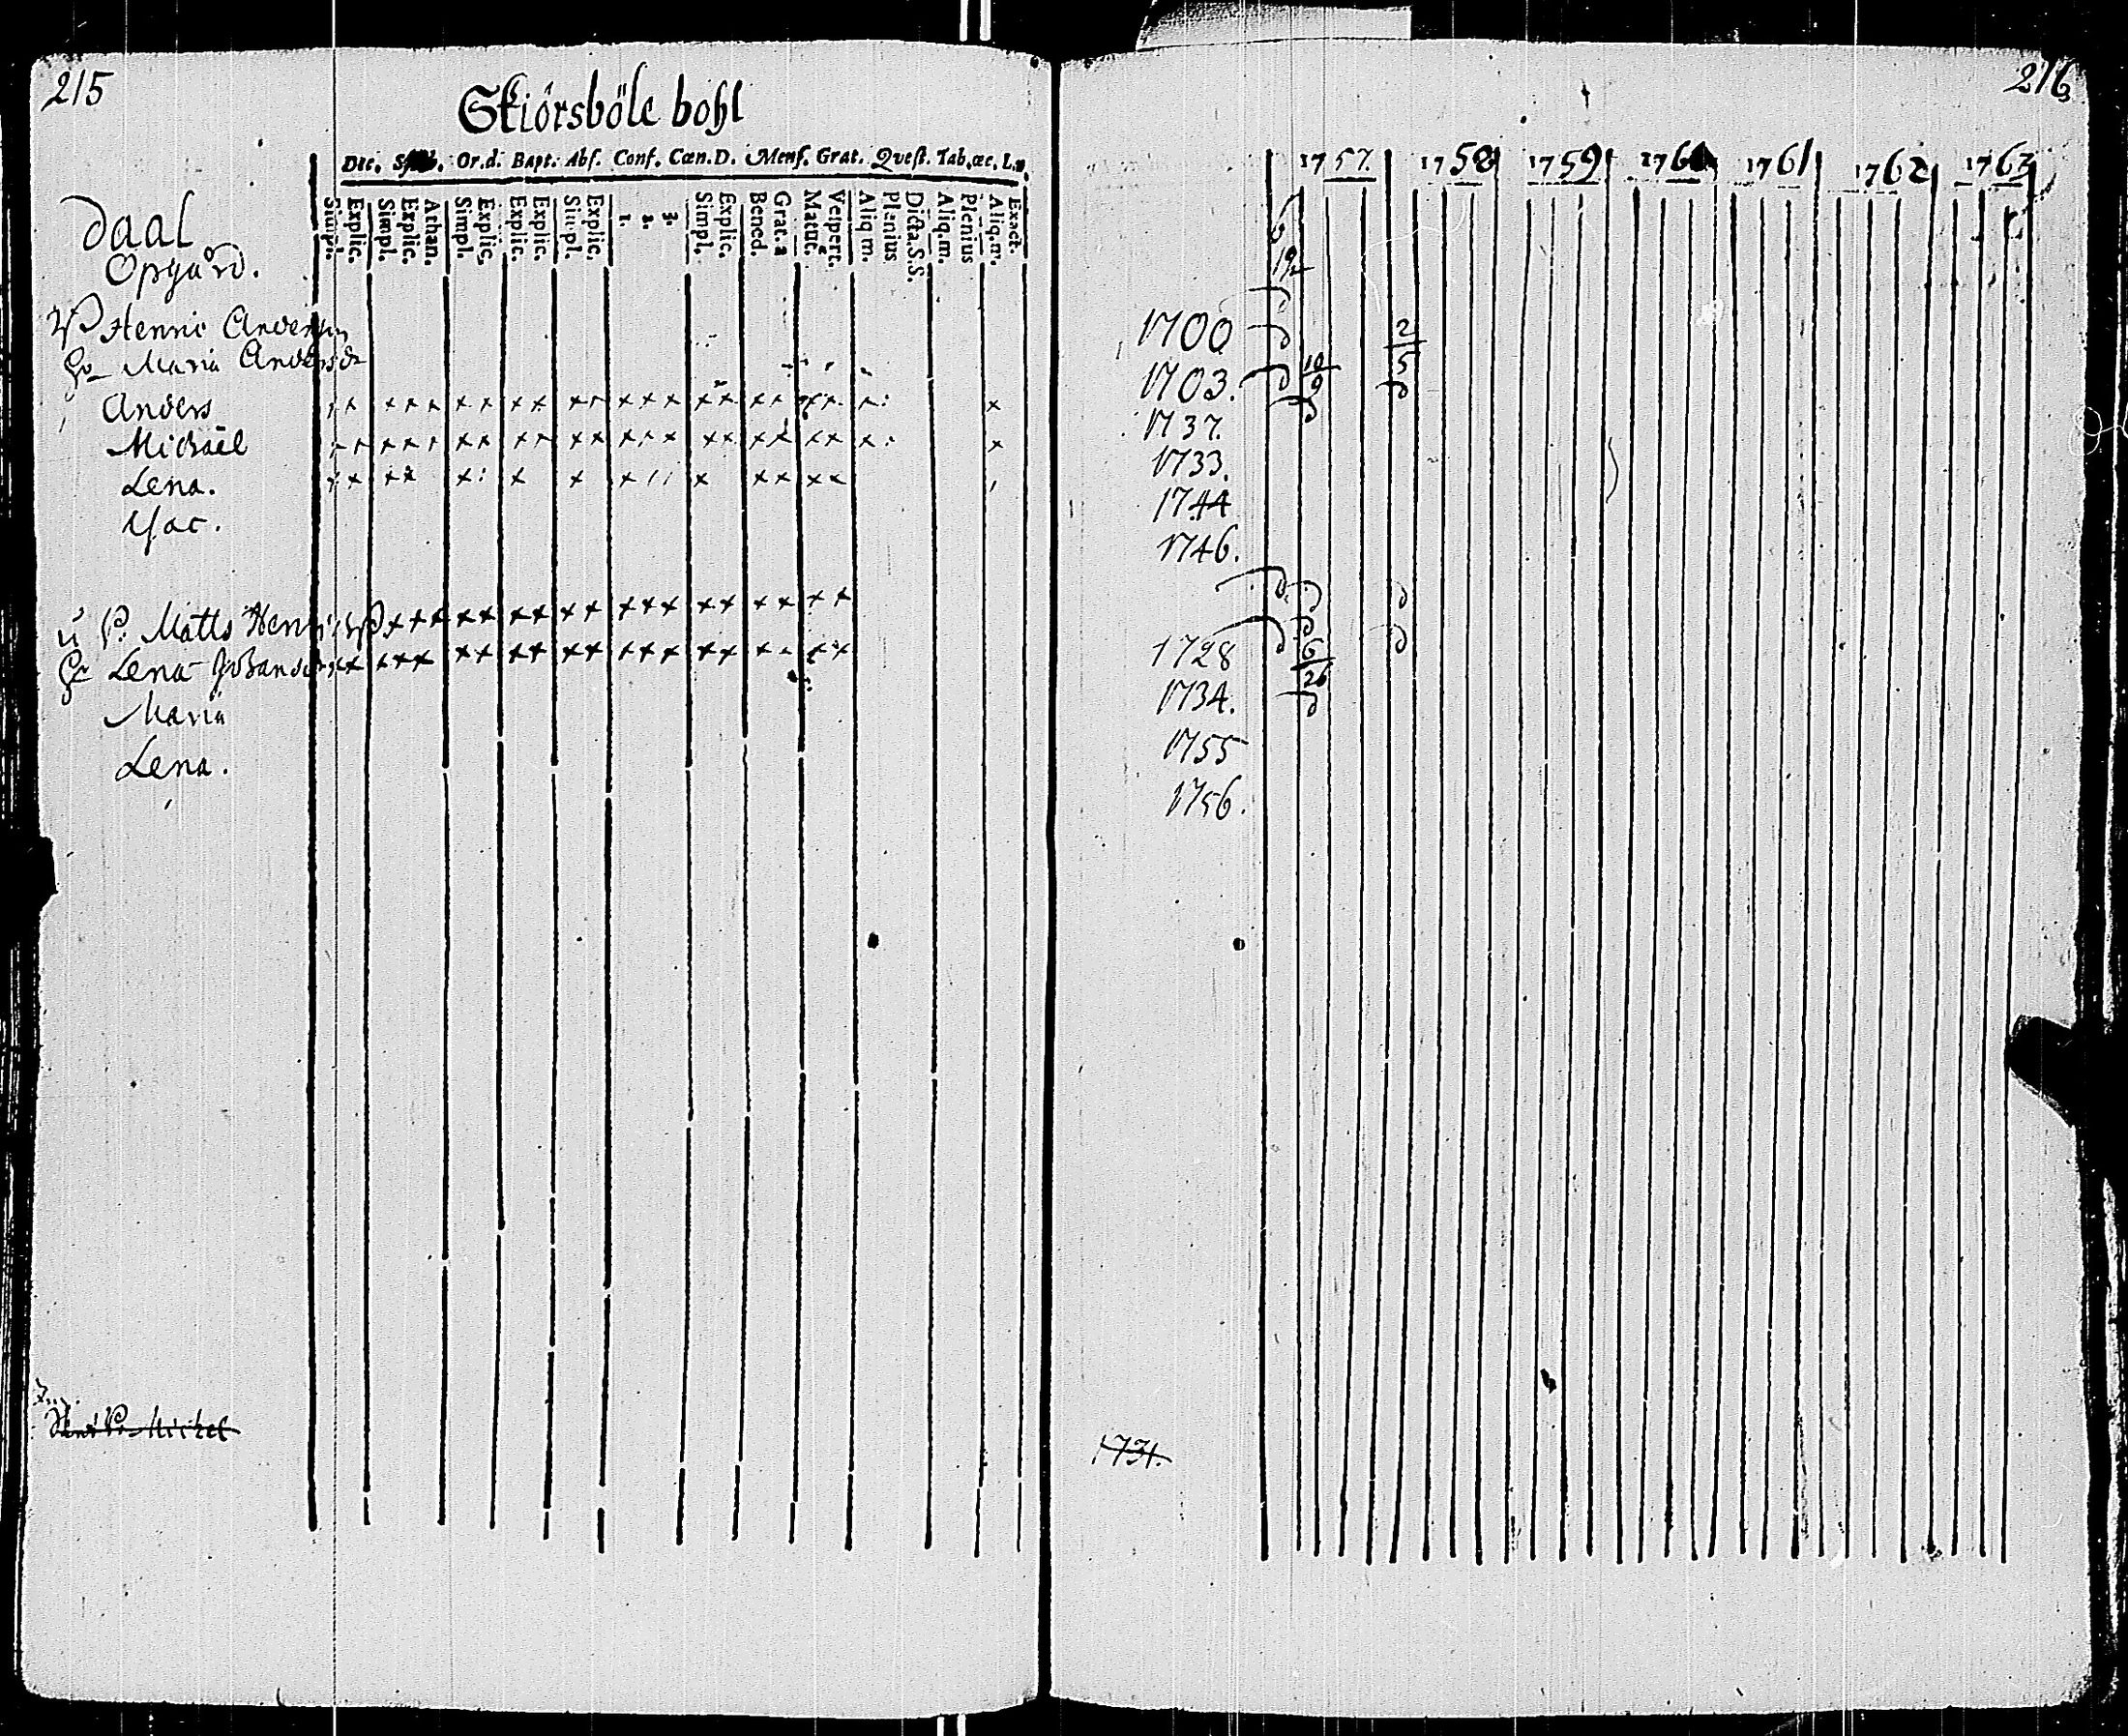 215
Skiörsböle bohl
Dec. Symb. Or.d. Bapt. Abs. Conf. Cœn.D. Menf. Grat. Quest. Tab.œc. L.
Simpl. Explic. Simpl. Explic. Athan. Simpl. Explic. Explic. Explic. Simpl. Explic. 1. 2. 3. Simpl. Explic. Bened. Grat. a Matut. Vespert. Aliq.m. Plenius Dicta.S.S. Aliq.m. Plenius Aliq.m. Exact.
Daal
Opgård.
Henric Andersson
Hu Maria Andersdr
Anders
Michaël
Lena.
Jac.
Matts Henrics
Hu Lena Johansdr
Maria
Lena.
Michel
216
1757. 1758 1759 1760 1761 1762 1763
6
19
1700 2
5
1703. 10
9
1737.
1733.
1744
1746.
1728 6
26
1734.
1755
1756.
1731.